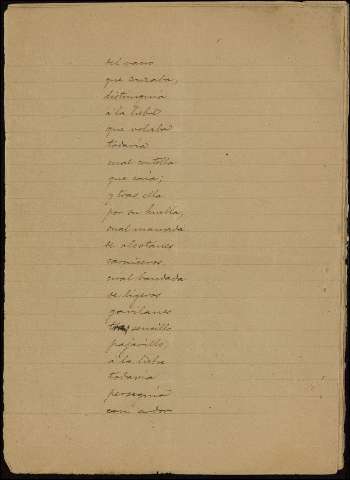 del vano
que cruzaba,
distinguia
á la liebre
que volaba
todavía
cual centella
que caía;
y tras ella
por su huella,
cual manada
de alcotanes
carniceros,
cual bandada
de ligeros
gavilanes
tras sencillo
pajarillo,
á la liebre
todavía
perseguía
con ardor